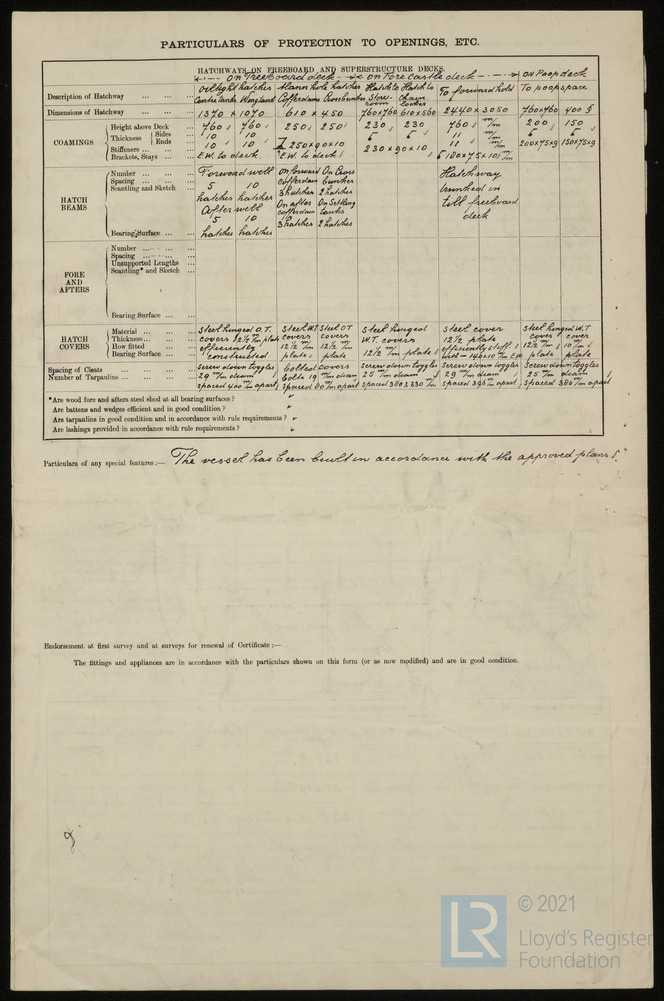 PARTICULARS OF PROTECTION TO OPENINGS, ETC.
HATCHWAYS ON FREEBOARD AND SUPERSTRUCTURE DECKS.
On Freeboard deck on Fore Castle deck on Poop deck
Description of Hatchway Oiltight hatches Hatch to Hatch to To forward hold To poop space
Centre tanks Wing tanks Cofferdams Cross bunker Store room Chain locker
Dimensions of Hatchway 1370 x 1070 610 x 450 760x760 610x560 2440 x 3050 760x760 400
COAMINGS
Height above Deck 760 760 250 250 230 230 760 m/m 200 150
Thickness Sides 10 10 6 6 11 m/m 6 6
Ends 10 10 250x90x10 11 m/m 200x75x9 150x75x9
Stiffeners E.W. to deck E.W. to deck 230x90x10
Brackets, Stays 6 180x75x10 m/m
HATCH BEAMS
Number
Spacing
Scantling and Sketch
Bearing Surface
Forward well
5 10
hatches hatches
After well
5 10
hatches hatches
on forward On Cross
cofferdam bunker
3 hatches 2 hatches
On after On Settling
cofferdam tanks
3 hatches 2 hatches
Hatchway
trunked in
till freeboard
deck
FORE AND AFTERS
Number
Spacing
Unsupported Lengths
Scantling* and Sketch
Bearing Surface
HATCH COVERS
Material
Thickness
How fitted
Bearing Surface
Steel hinged O.T.
covers 12½ m/m plate
efficiently
constructed
Steel W.T. Steel OT
covers covers
12½ m/m 12½ m/m
plate plate
Steel hinged
W.T. covers
12½ m/m plate
Steel cover
12½ plate
efficiently stiff.
Steel hinged W.T
cover cover
12½ m/m 10 m/m
plate plate
Spacing of Cleats
Number of Tarpaulins
Screw down toggles
29 m/m diam
spaced 400 m/m apart
Bolted covers
Bolts 19 m/m diam
spaced 80 m/m apart
Screw down toggles
25 m/m diam
spaced 380 & 330 m/m
Screw down toggles
29 m/m diam
spaced 396 m/m apart
Screw down toggles
25 m/m diam
spaced 380 m/m apart
*Are wood fore and afters steel shod at all bearing surfaces?
Are battens and wedges efficient and in good condition?
Are tarpaulins in good condition and in accordance with rule requirements?
Are lashings provided in accordance with rule requirements?
Particulars of any special features:— The vessel has been built in accordance with the approved plans.
Endorsement at first survey and at surveys for renewal of Certificate:—
The fittings and appliances are in accordance with the particulars shown on this form (or as now modified) and are in good condition.
LR
© 2021
Lloyd's Register
Foundation